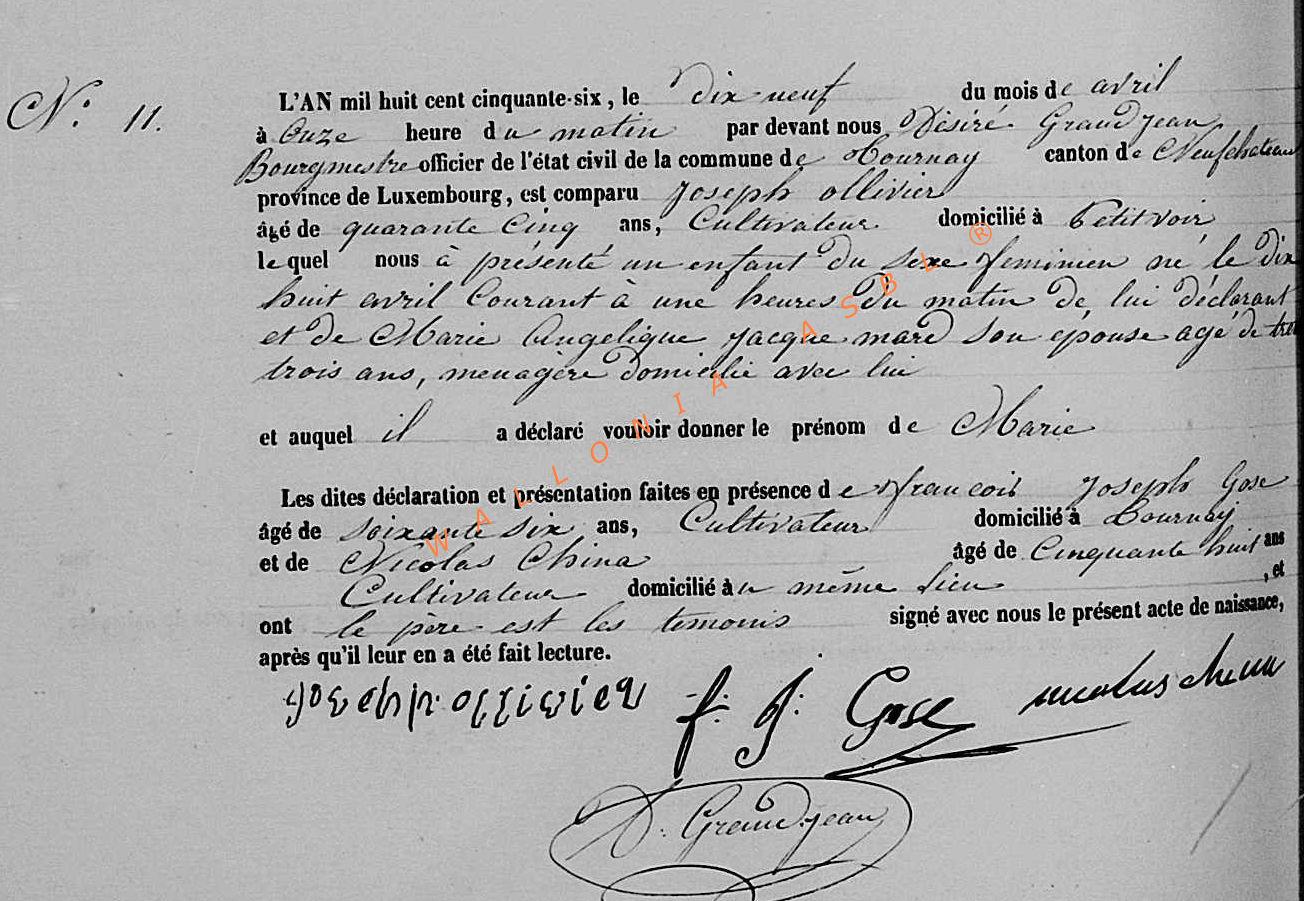 N.° 11.
L'AN mil huit cent cinquante-six, le dix neuf du mois de avril
à Onze heure du matin par devant nous Désiré Grandjean
Bourgmestre officier de l'état civil de la commune de Tournay canton de Neufchateau
province de Luxembourg, est comparu Joseph ollivier
âgé de quarante Cinq ans, Cultivateur domicilié à Petitvoir
lequel nous à présenté un enfant du sexe feminien né le Dix
huit avril Courant à une heures du matin de lui déclarant
et de Marie Angelique Jacque mard son épouse agé de
trois ans, menagère domicilié avec lui
et auquel il a déclaré vouloir donner le prénom de Marie
Les dites déclaration et présentation faites en présence de francois Joseph Gose
âgé de soixante six ans, Cultivateur domicilié à Tournay
et de Nicolas China âgé de Cinquante huit ans
Cultivateur domicilié àu même lieu , et
ont le père est les temonis signé avec nous le présent acte de naissance,
après qu'il leur en a été fait lecture.
joseph ollivier f: J: Gose nicolas china
D. Grandjean
WALLONIA ASBL ®